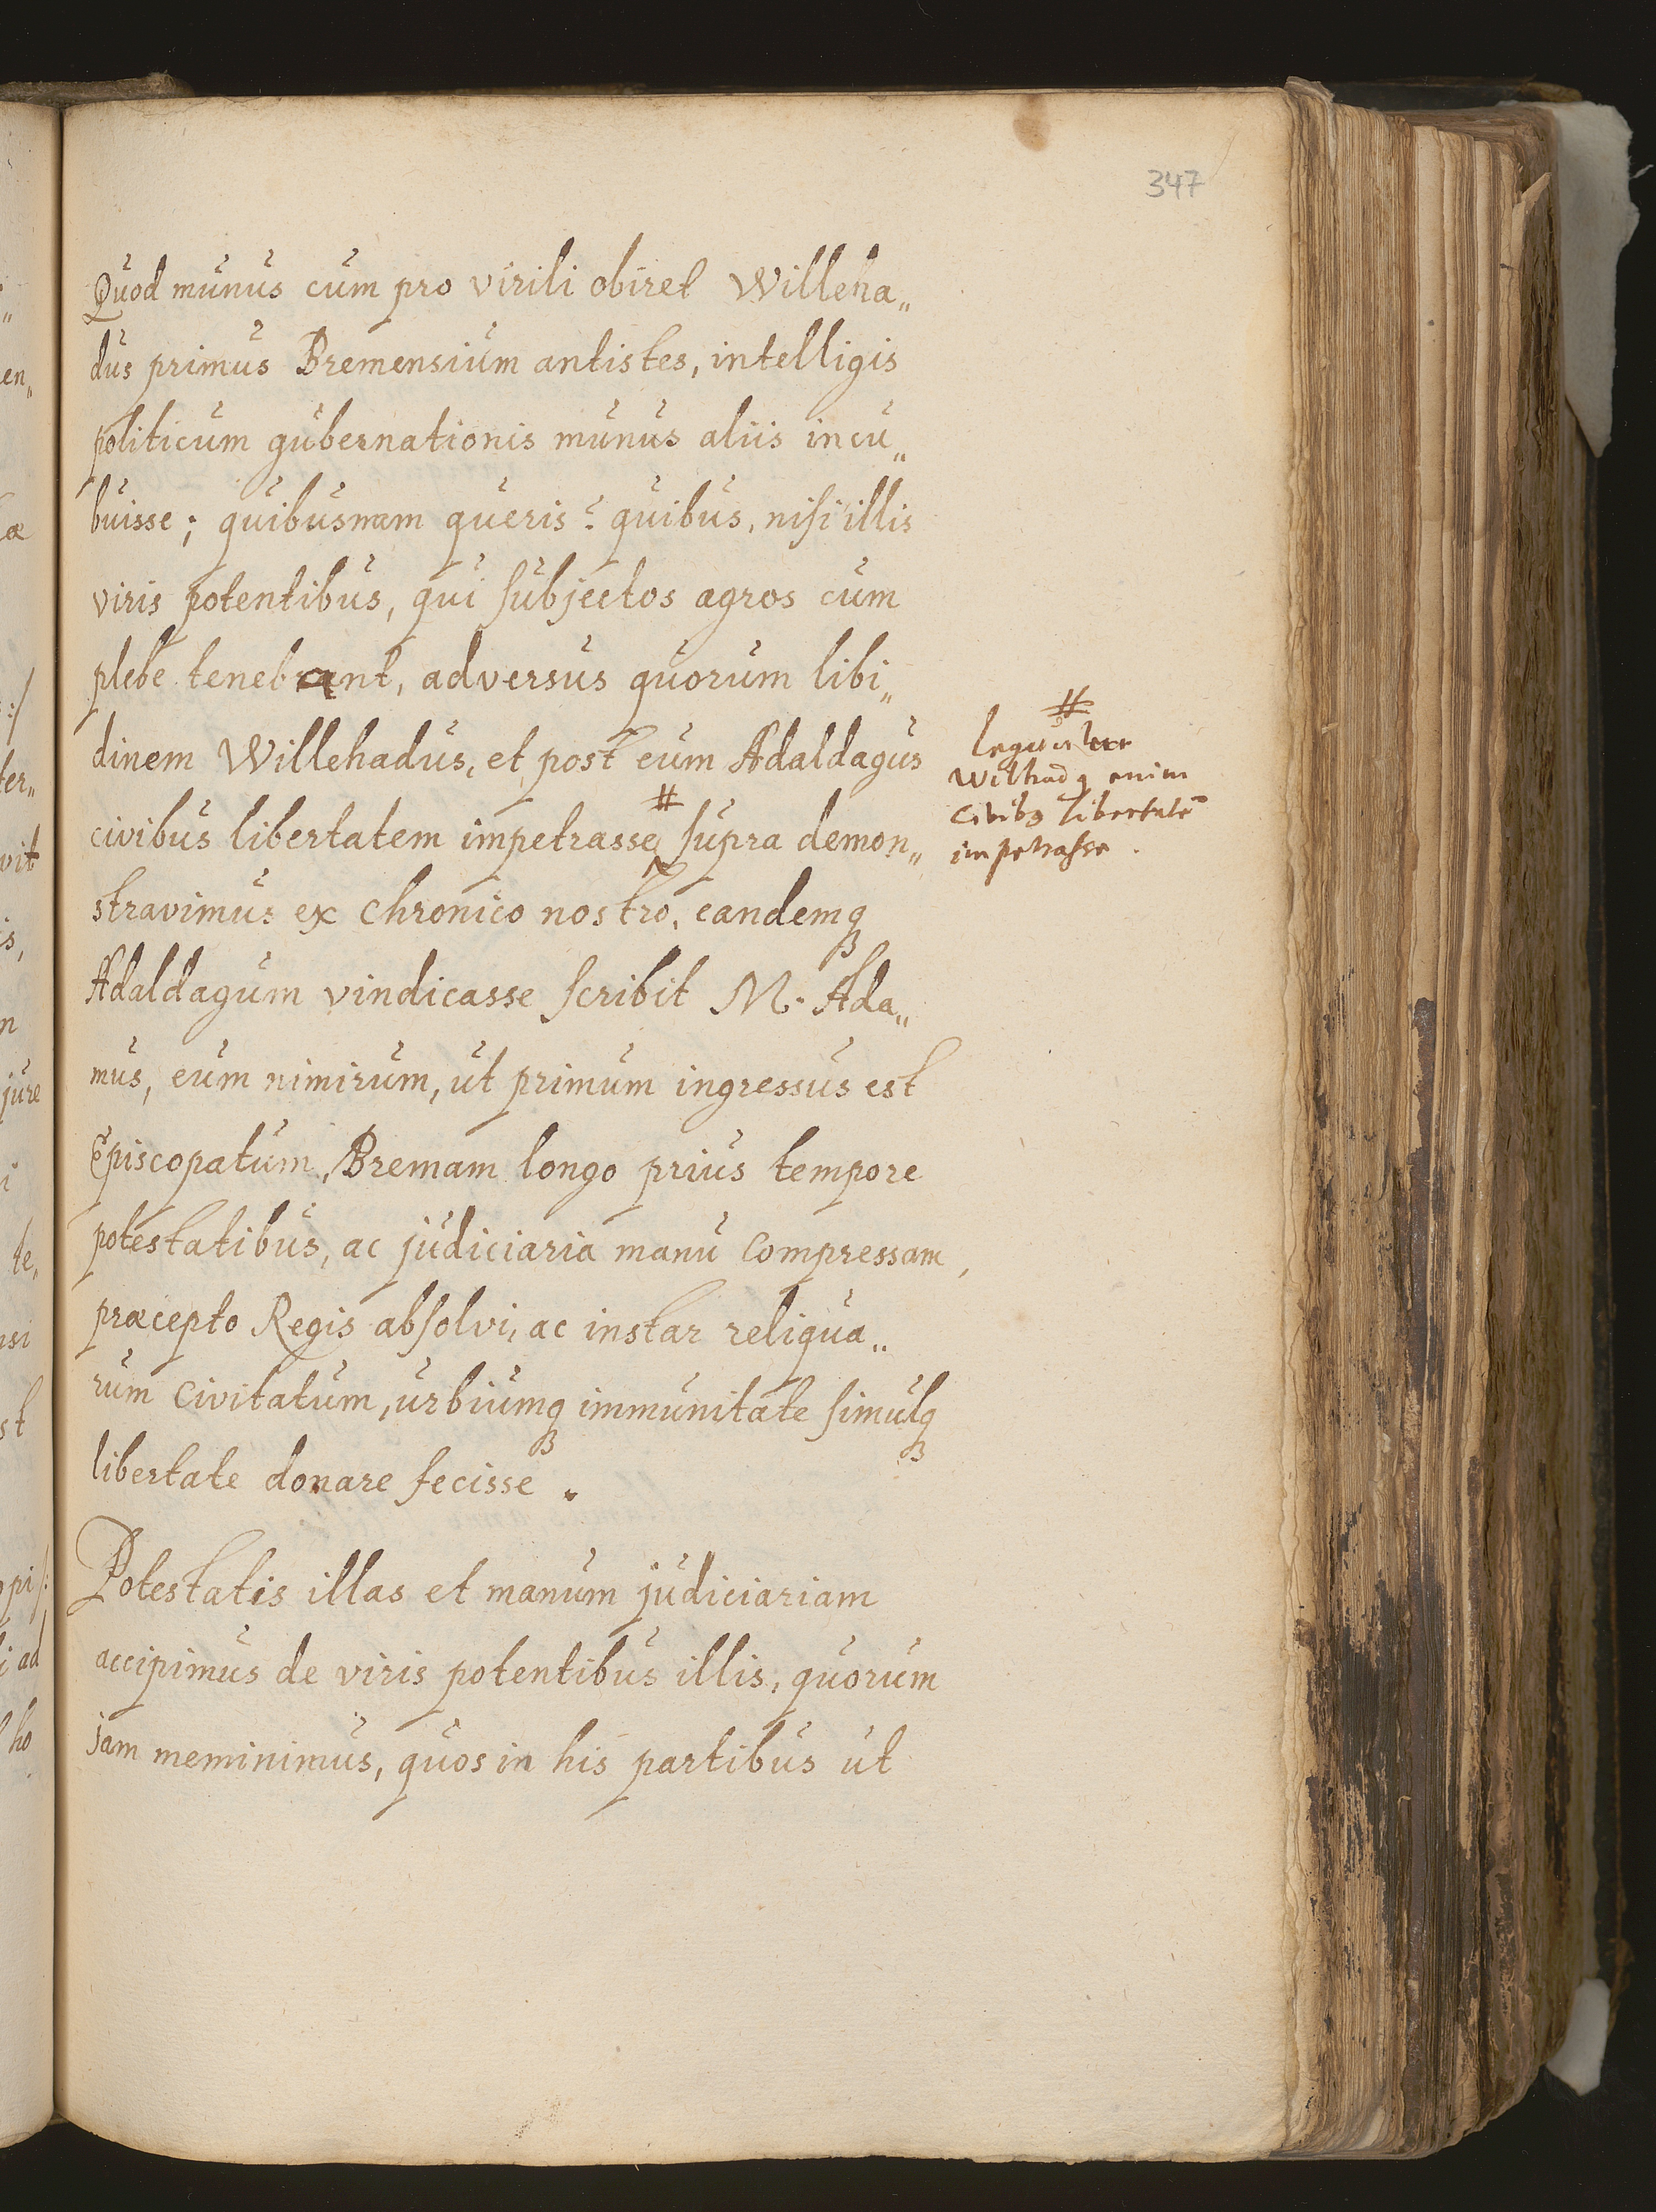 347
Quod munus cum pro virili obiret Willeha„
dus primus Bremensium antistes, intelligis
politicum gubernationis munus aliis incu„
buisse; quibusnam queris? quibus, nisi illis
viris potentibus, qui subjectos agros cum
plebe tenebant, adversus quorum libi„
dinem Willehadus, et post eum Adaldagus
civibus libertatem impetrasse # supra demon„
stravimus ex chronico nostro, eandemq3
Adaldagum vindicasse scribit M. Ada„
mus, eum nimirum, ut primum ingressus est
Episcopatum, Bremam longo prius tempore
potestatibus, ac judiciaria manu compressam,
præcepto Regis absolvi, ac instar reliqua„
rum civitatum, urbiumq3 immunitate simulq3
libertate donare fecisse.
Potestatis illas et manum judiciariam
accipimus de viris potentibus illis, quorum
jam meminimus, quos in his partibus ut
#
Wilhadq enim
civib9 libertatē
impetrasse.